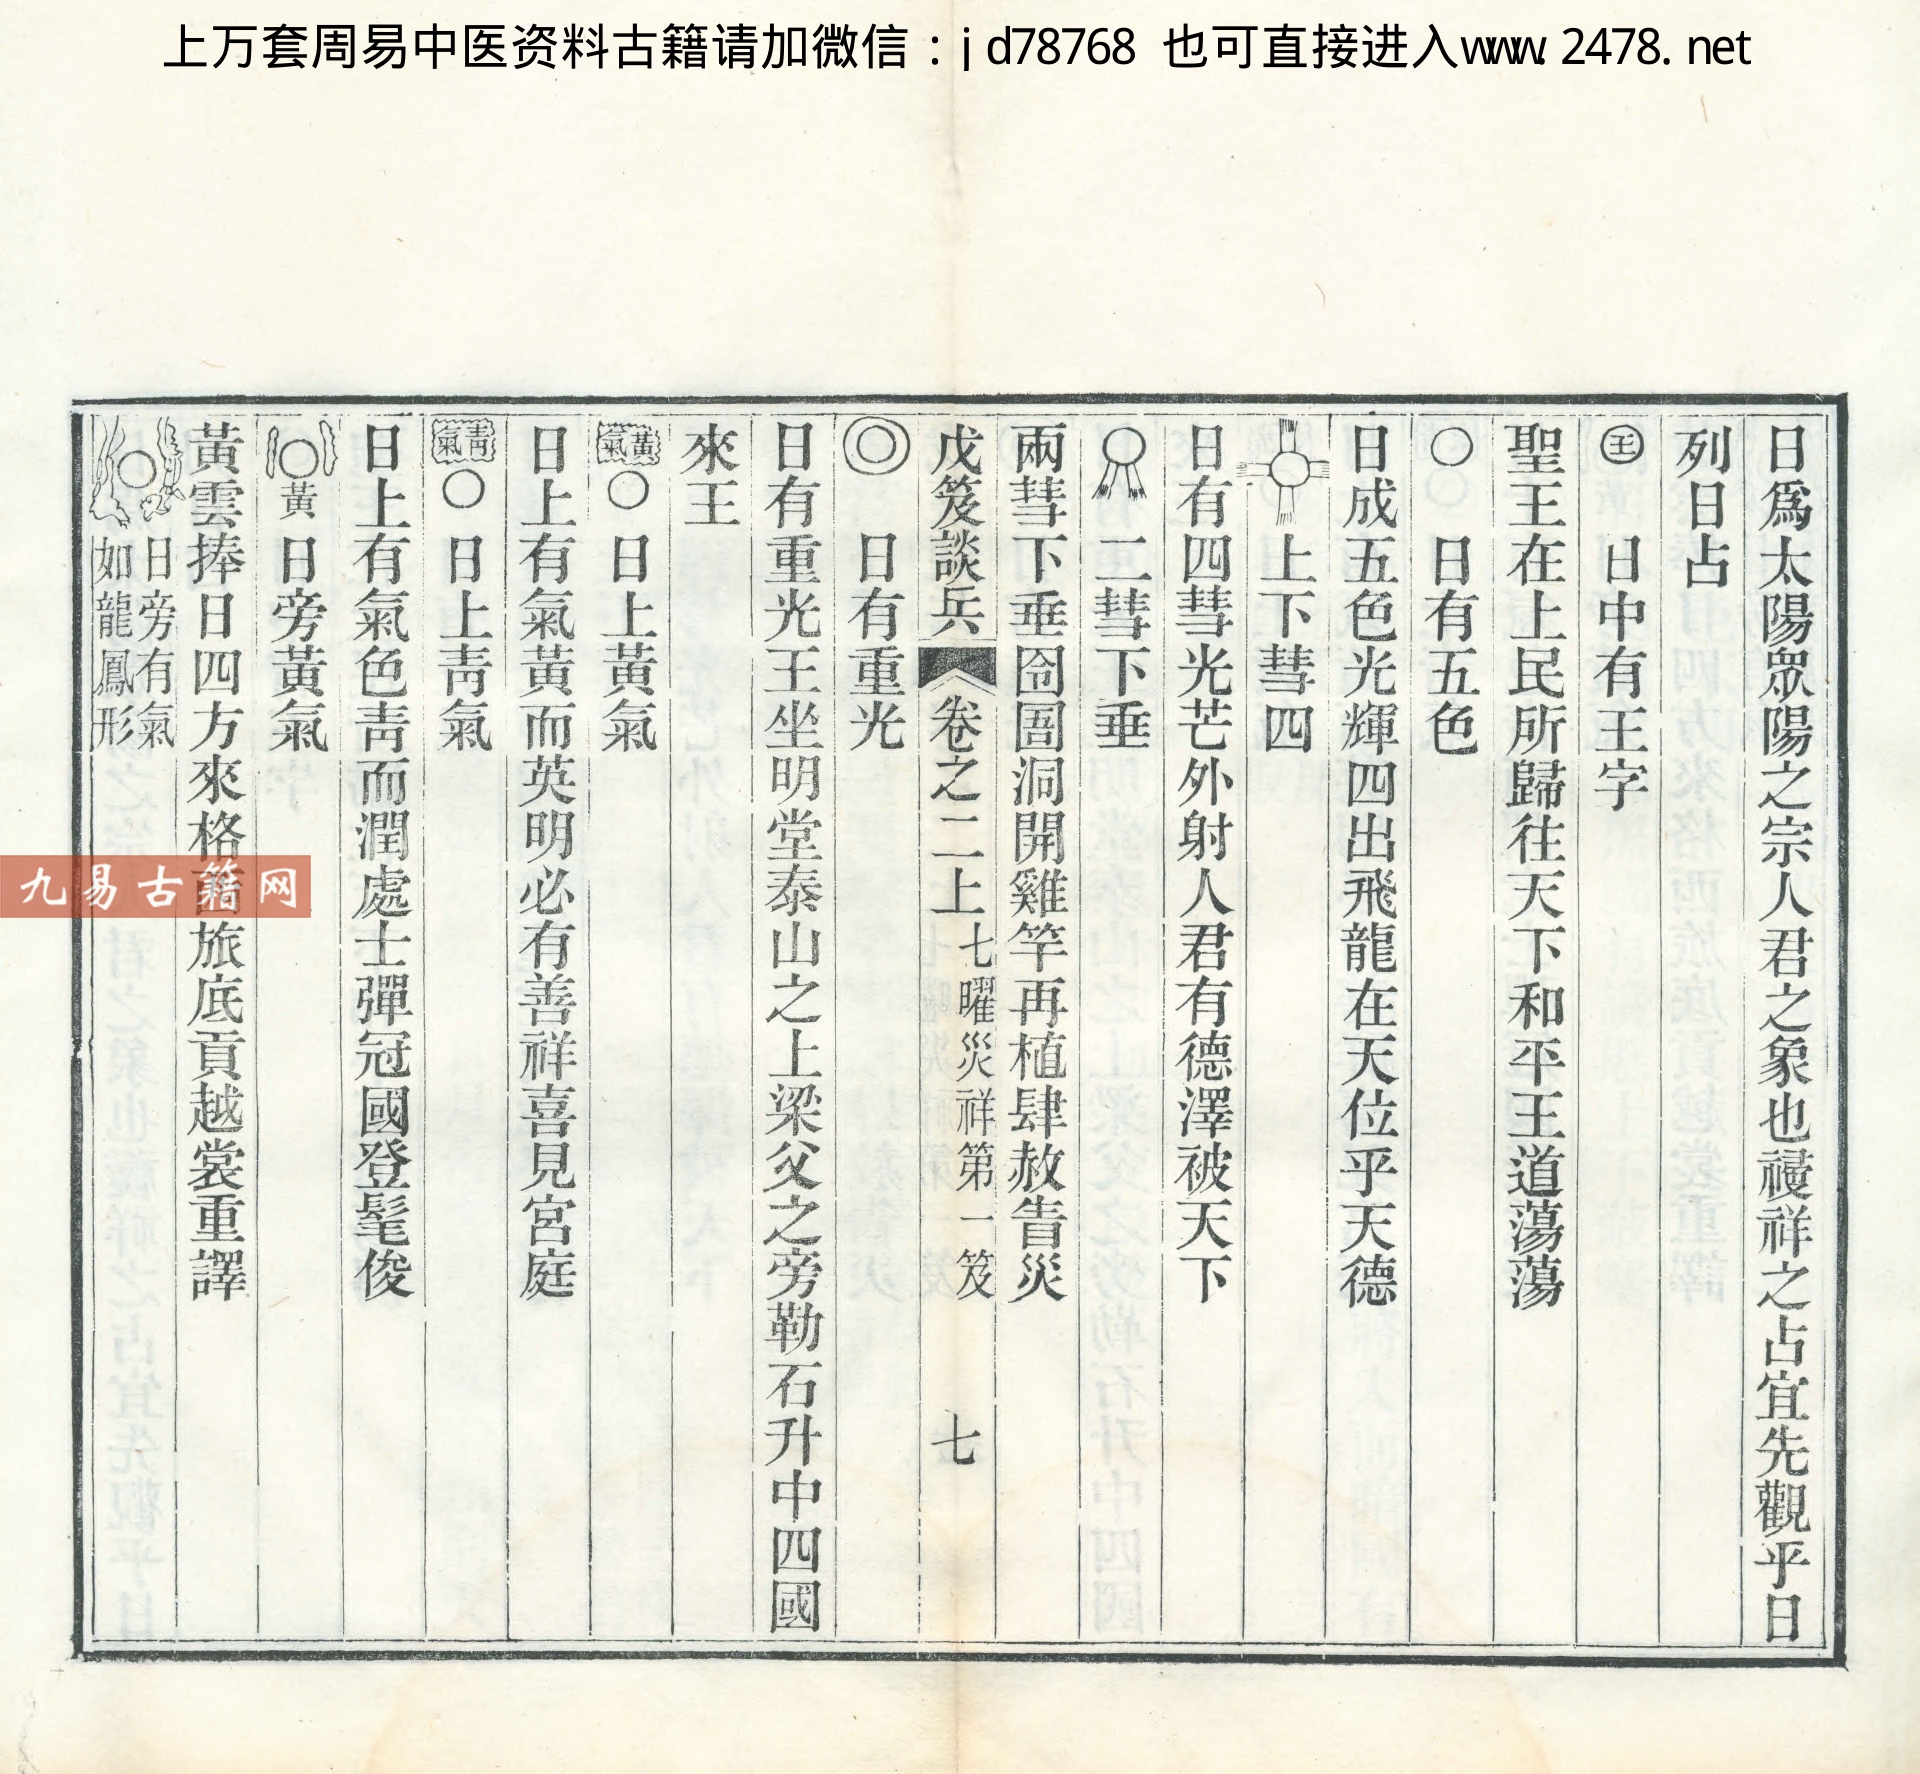 上万套周易中医资料古籍请加微信：jd78768 也可直接进入www.2478.net
日爲太陽眾陽之宗人君之象也祲祥之占宜先觀乎日
列日占
王 日中有王字
聖王在上民所歸往天下和平王道蕩蕩
日有五色
日成五色光輝四出飛龍在天位乎天德
上下彗四
日有四彗光芒外射人君有德澤被天下
二彗下垂
兩彗下垂囹圄洞開雞竿再植肆赦眚災
戊笈談兵 卷之二上 七曜災祥第一笈 七
日有重光
日有重光王坐明堂泰山之上梁父之旁勒石升中四國
來王
黃氣 日上黃氣
日上有氣黃而英明必有善祥喜見宮庭
靑氣 日上靑氣
日上有氣色靑而潤處士彈冠國登髦俊
黃 日旁黃氣
黃雲捧日四方來格西旅底貢越裳重譯
日旁有氣
如龍鳳形
九易古籍网